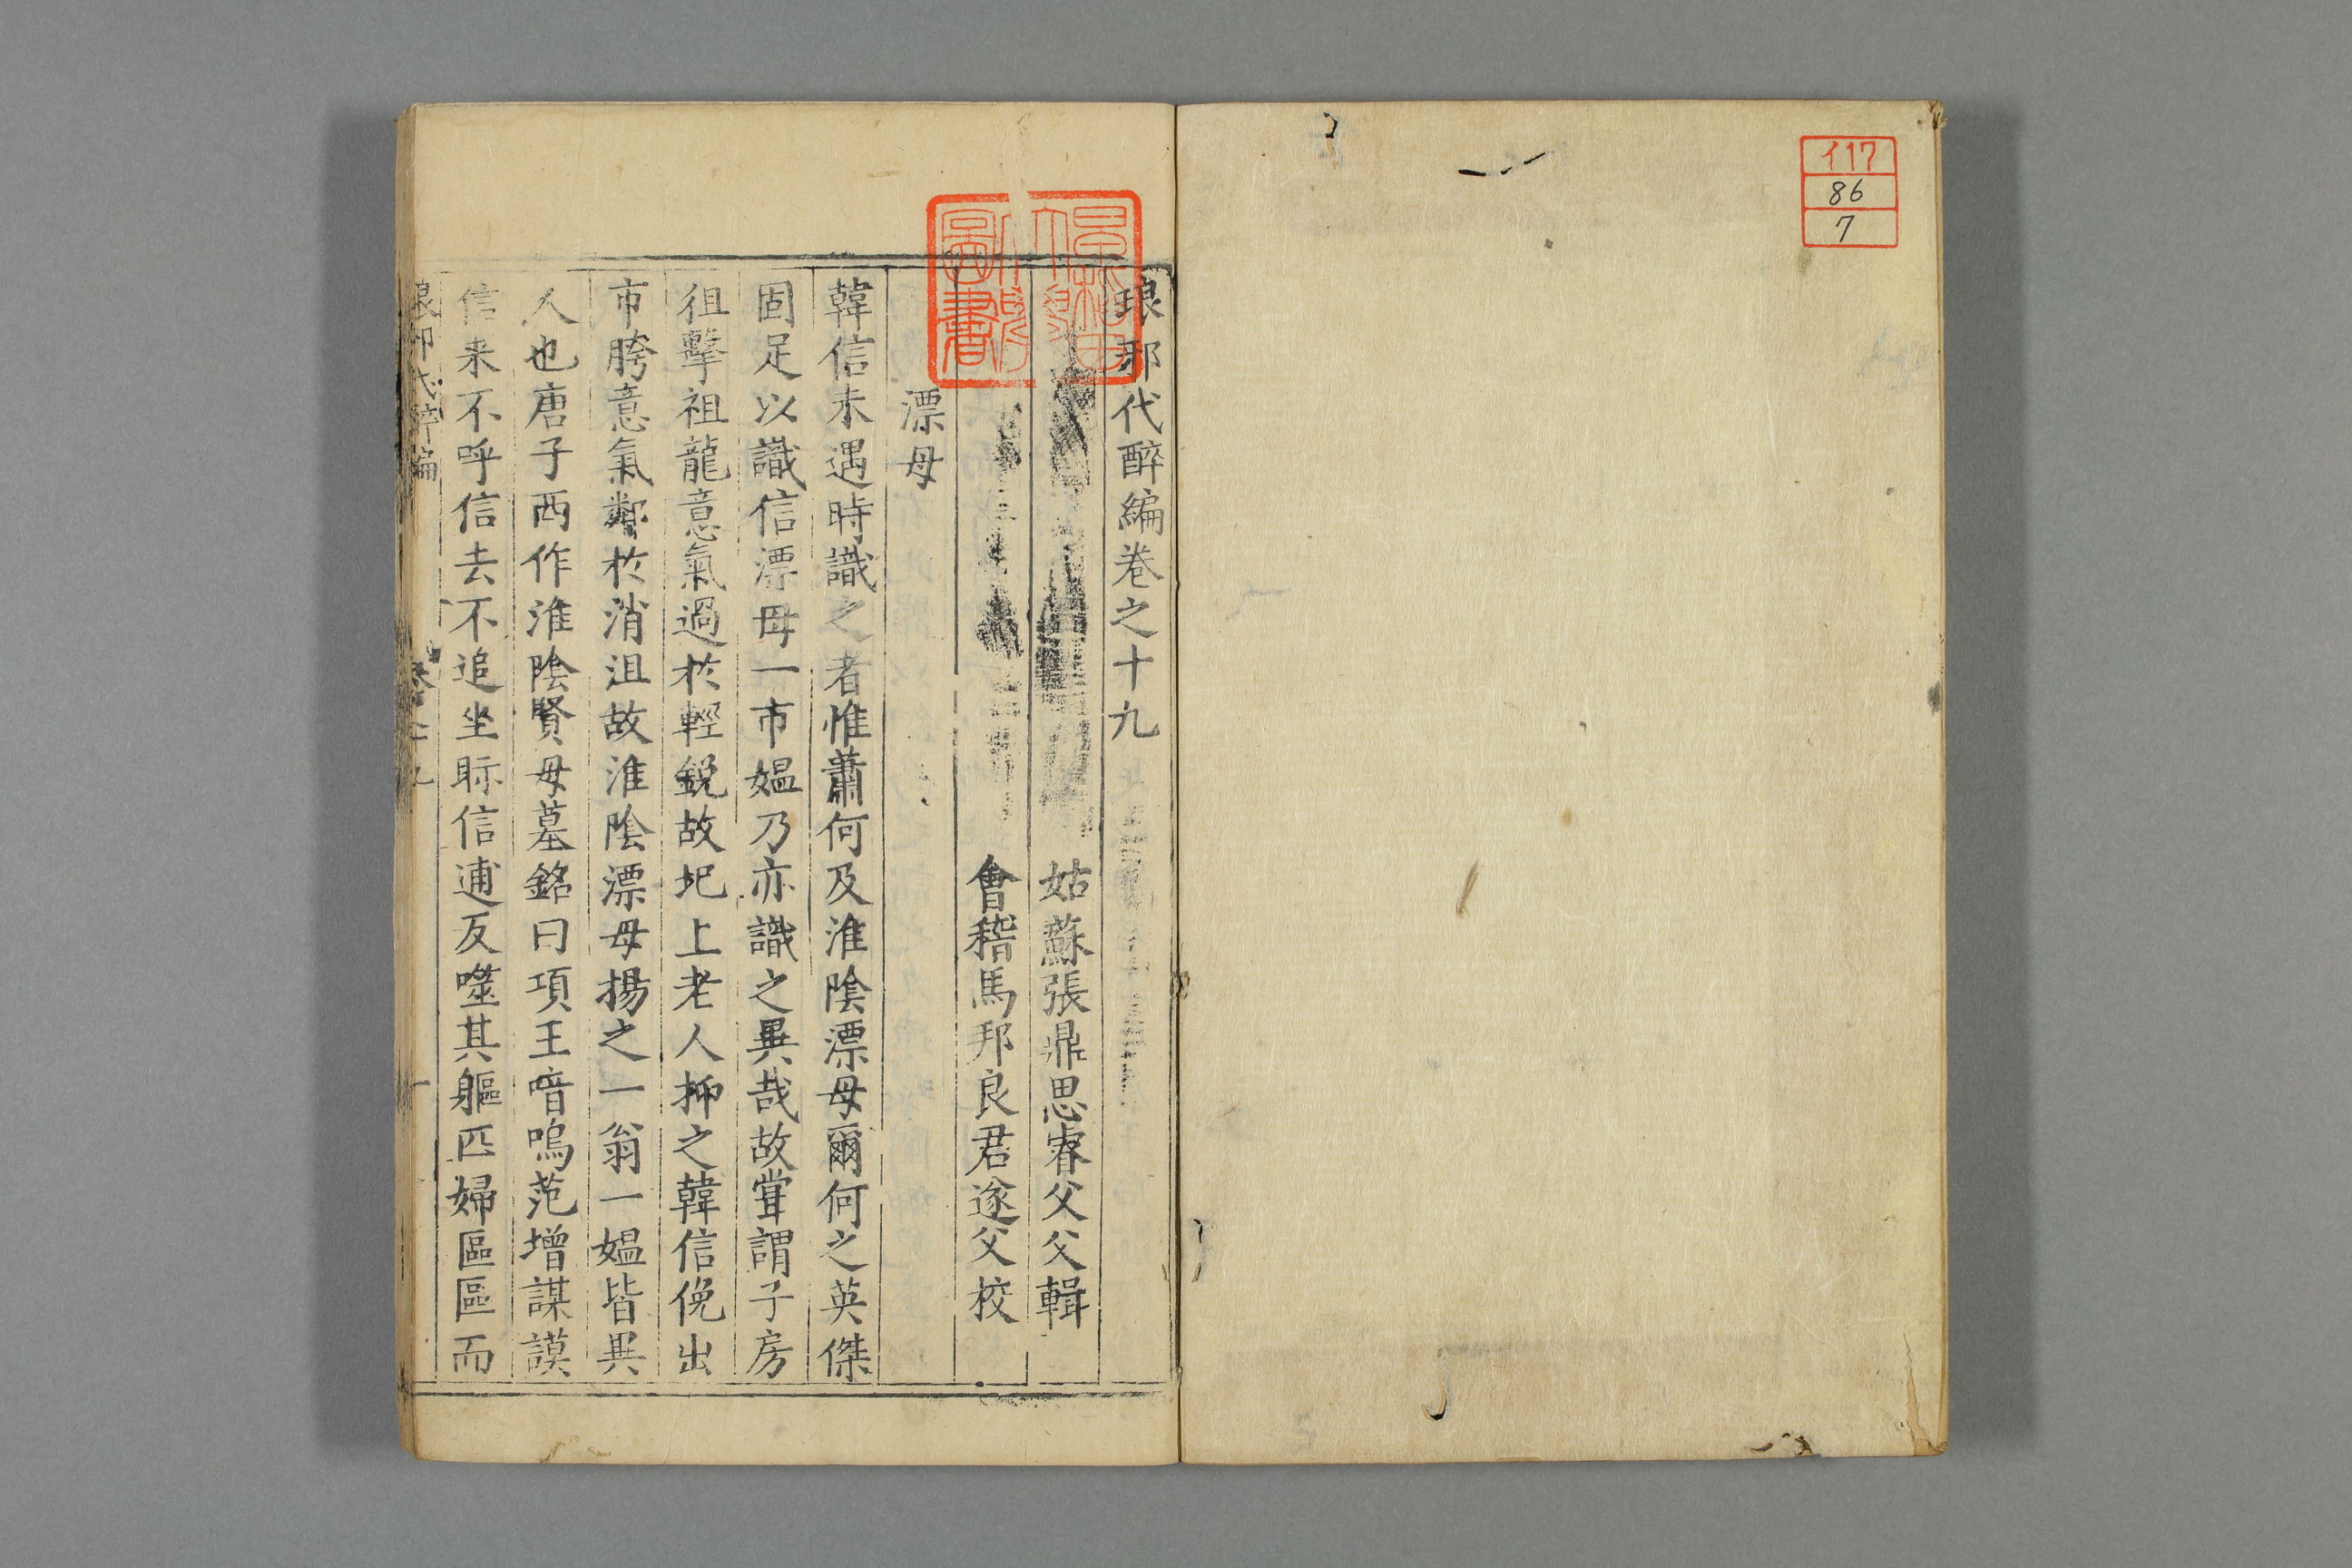 イ17
86
7
琅邪代醉編卷之十九
姑蘇張鼎思睿父父輯
會稽馬邦良君遂父校
漂母
韓信未遇時識之者惟蕭何及淮陰漂母爾何之英傑
固足以識信漂母一市媼乃亦識之異哉故嘗謂子房
狙擊祖龍意氣過於輕銳故圯上老人抑之韓信俛出
市胯意氣鄰於消沮故淮陰漂母揚之一翁一媼皆異
人也唐子西作淮陰賢母墓銘曰項王喑嗚范增謀謨
信来不呼信去不追坐眎信逋反噬其軀匹婦區區而
琅邪代醉編 卷十九 一